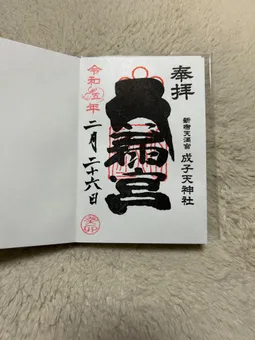 奉拝
新宿天満宮
成子天神社
天満宮
令和五年
二月二十六日